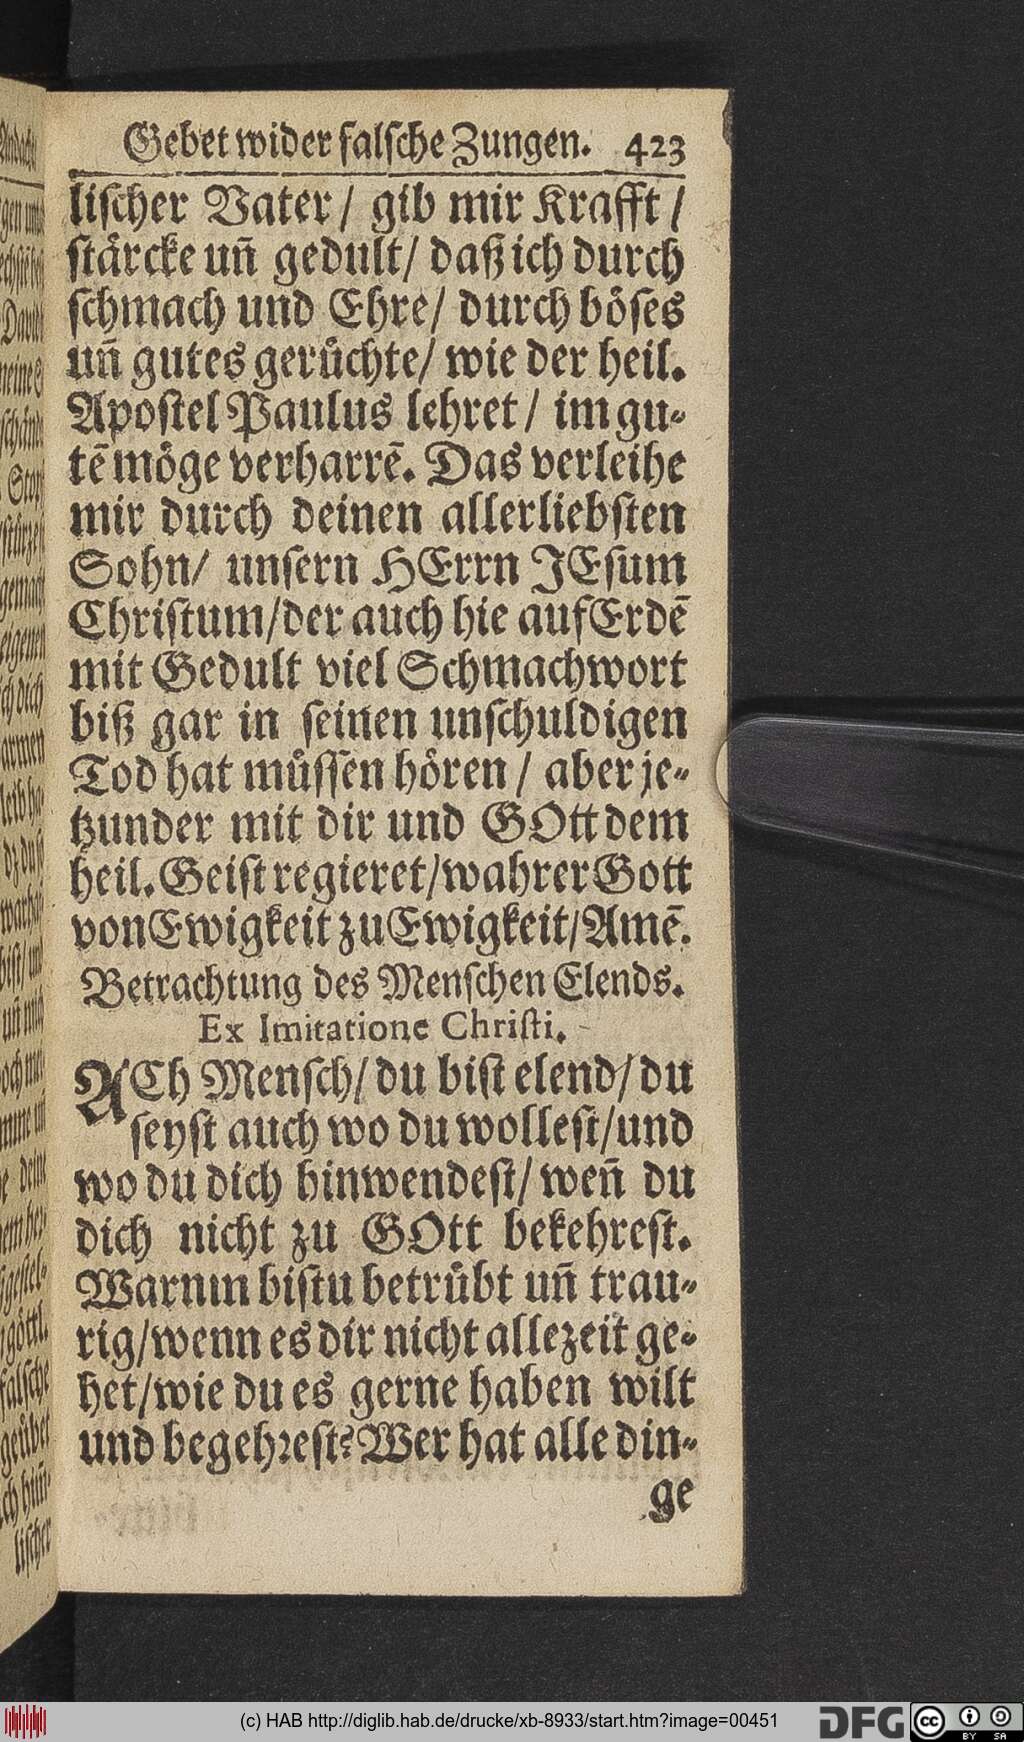 Gebet wider falsche Zungen. 423
lischer Vater / gib mir Krafft /
stårcke uñ gedult / daß ich durch
schmach und Ehre / durch böses
uñ gutes gerůchte / wie der heil.
Apostel Paulus lehret / im gu-
tē möge verharrē. Das verleihe
mir durch deinen allerliebsten
Sohn / unsern HErrn JEsum
Christum / der auch hie auf Erdē
mit Gedult viel Schmachwort
biß gar in seinen unschuldigen
Tod hat můssen hören / aber je-
tzunder mit dir und GOtt dem
heil. Geist regieret / wahrer Gott
von Ewigkeit zu Ewigkeit / Amē.
Betrachtung des Menschen Elends.
Ex Imitatione Christi.
ACh Mensch / du bist elend / du
seyst auch wo du wollest / und
wo du dich hinwendest / weñ du
dich nicht zu GOtt bekehrest.
Warnm bistu betrůbt uñ trau-
rig / wenn es dir nicht allezeit ge-
het / wie du es gerne haben wilt
und begehrest? Wer hat alle din-
ge
lischer
(c) HAB http://diglib.hab.de/drucke/xb-8933/start.htm?image=00451
DFG
cc BY SA